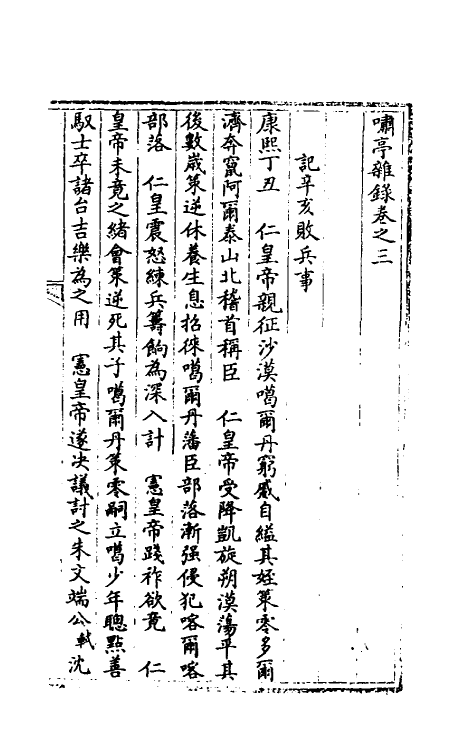 嘯亭雜錄卷之三
記辛亥敗兵事
康熙丁丑　仁皇帝親征沙漠噶爾丹窮蹙自縊其姪策零多爾
濟奔竄阿爾泰山北稽首稱臣　仁皇帝受降凱旋朔漠蕩平其
後數歲策逆休養生息招徠噶爾丹藩臣部落漸强侵犯喀爾喀
部落　仁皇震怒練兵籌餉為深入計　憲皇帝踐祚欲竟　仁
皇帝未竟之緒會策逆死其子噶爾丹策零嗣立噶少年聰黠善
馭士卒諸台吉樂為之用　憲皇帝遂決議討之朱文端公軾沈